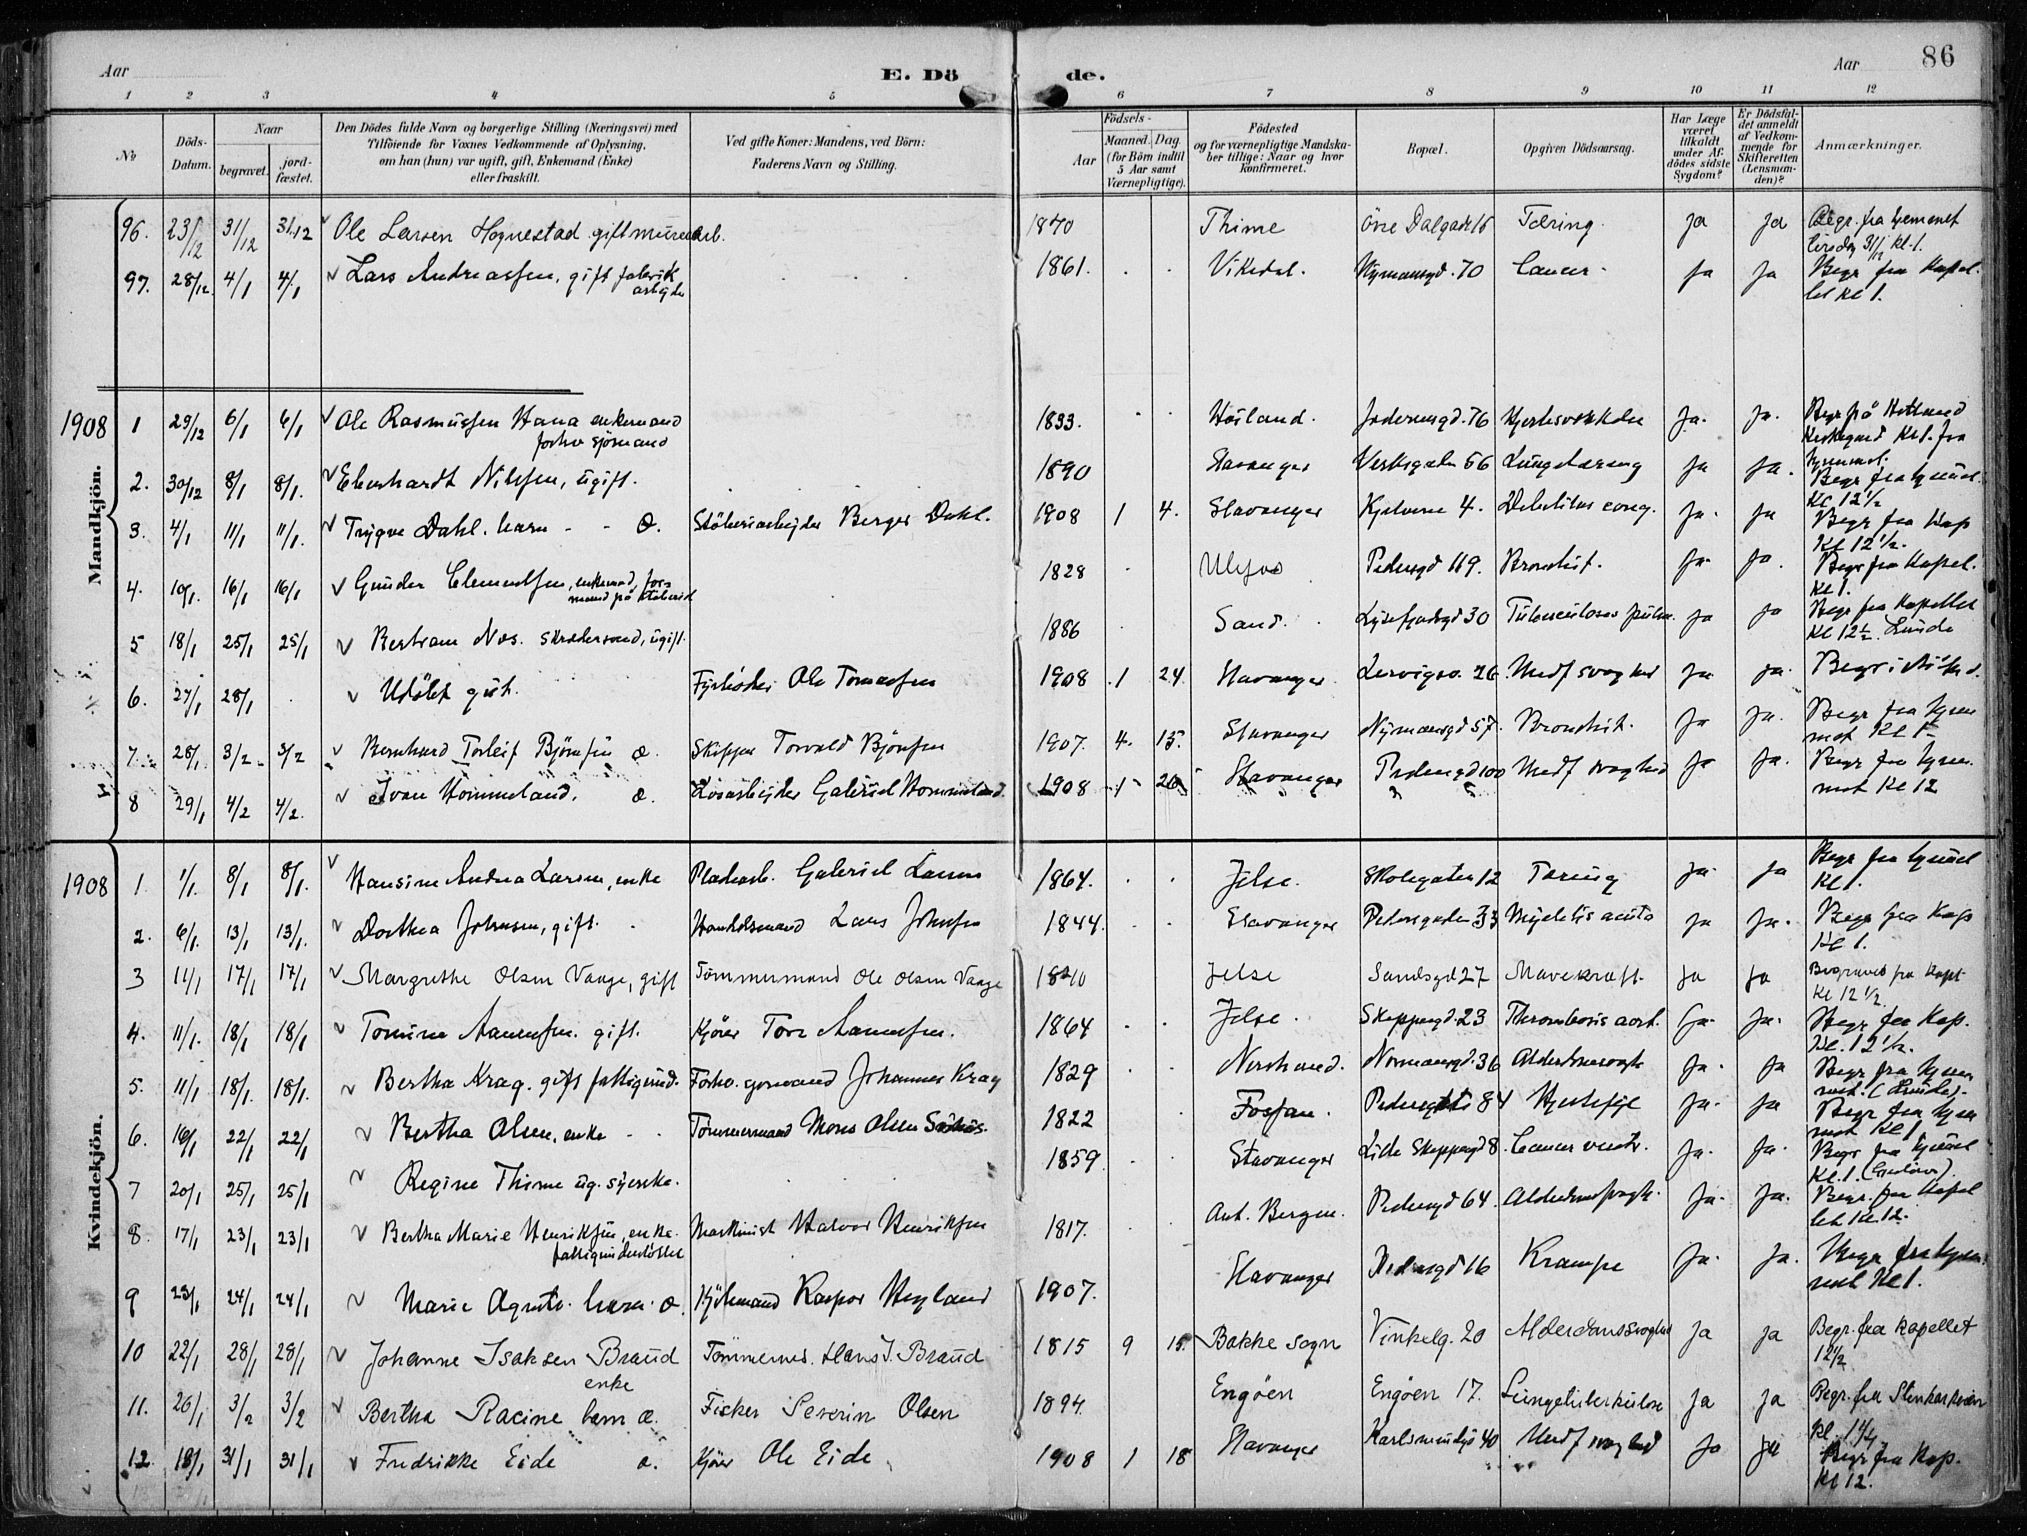 Aar
E. Dö
de.
Aar
86
1 2 3 4 5 6 7 8 9 10 11 12
No
Döds-Datum.
Naar
begravet.
jord-fæstet.
Den Dödes fulde Navn og borgerlige Stilling (Næringsvei) med
Tilföiende for Voxnes Vedkommende af Oplysning,
om han (hun) var ugift, gift, Enkemand (Enke)
eller fraskilt.
Ved gifte Koner: Mandens, ved Börn:
Faderens Navn og Stilling.
Födsels-
Aar
Maaned. Dag.
(for Börn indtil
5 Aar samt
Værnepligtige).
Födested
og for værnepligtige Mandska-
ber tillige: Naar og hvor
konfirmeret.
Bopæl.
Opgiven Dödsaarsag.
Har Læge
været
tilkaldt
under Af-
dödes sidste
Sygdom?
Er Dödsfal-
det anmeldt
af Vedkom-
mende for
Skifteretten
(Lensman-
den)?
Anmærkninger.
96. 23/12 31/12 31/12 Ole Larsen Hognestad gift murerarb. 1870 Thime Övre Dalgade 16 Tæring. ja ja Begr. fra hjemmet
tirsdag 31/12 kl. 1.
97. 28/12 4/1 4/1 Lars Andreassen, gift fabrik
arbejder 1861. Vikedal. Nymansgd. 70 Cancer. ja ja Begr fra Kapel-
let kl 1.
1908
Mandkjön.
1 29/12 6/1 6/1 Ole Rasmussen Hana enkemand
forhv sjömand 1833. Höiland. Jæderensgd. 76 Hjertesvækkelse ja. ja. Begr på Hetland
Kirkegaard Kl 1. fra
hjemmet.
2. 30/12 8/1 8/1. Eberhardt Nilssen, ugift. 1890 Stavanger Verksgaden 56 Lungetæring ja ja. Begr fra hjemmet
Kl 12 1/2
3. 4/1 11/1 11/1. Trygve Dahl. barn æ. Stöberiarbejder Berger Dahl. 1908 1 4. Stavanger Kjelvene 4. Debilitas cong. ja. ja Begr fra Kap
Kl 12 1/2.
4. 10/1. 16/1 16/1 Gunder Clementsen, enkemand, for-
mand på stöberiet 1828 Pedersgd 119. Bronchit. ja. ja. Begr fra Kapel.
Kl 1.
5 18/1 25/1 25/1 Bertram Næs. skrædersvend, ugift. 1886 Sand. Lysefjordsgd 30 Tuberculoses pulm. ja ja Begr fra Kapellet
Kl 12 1/2. Lunde
6. 27/1 28/1 Udöbt gut. Fyrböder Ole Tomassen 1908 1 24. Stavanger. Lervigsv. 26. Medf svaghed ja ja. Begr i
7. 28/1. 3/2 3/2 Bernhard Torleif Björnsen æ. Skipper Torvald Björnsen 1907. 4. 15. Stavanger Nymansgd 57. Bronchit. ja ja. Begr fra hjem
met Kl 1
8 29/1 4/2 4/2. Ivan Hommeland. æ. Lösarbejder Gabriel Hommeland. 1908 1 26 Stavanger Pedersgd 100 Medf svaghed ja ja. Begr fra hjem
met Kl 12
1908
Kvindekjön.
1. 1/1. 8/1 8/1. Hansine Andrea Larsen, enke Pladearb. Gabriel Larsen 1864. Jelse. Skolegaten 12 Tæring ja. ja Begr fra hjemmet
Kl 1.
2. 6/1. 13/1 13/1. Dorthea Johnsen, gift. Handelsmand Lars Johnsen 1844. Stavanger Pedersgaden 33 Myelitis acuta ja ja. Begr fra Kap
Kl 1.
3 11/1 17/1 17/1 Margrethe Olsen Vaage, gift Tömmermand Ole Olsen Vaage 1840 Jelse Sandsgd 27 Mavekræft. ja ja Begraves fra Kapt
Kl 12 1/2.
4. 11/1. 18/1 18/1 Tomine Aanensen. gift. Kjörer Tore Aanensen. 1864 Jelse. Skippergd. 23 Thrombosis aort. ja. ja. Begr fra Kap.
Kl. 12 1/2.
5. 11/1 18/1. 18/1. Bertha Krag. gift fattigund. Forhv. sjömand Johannes Krag 1829 Nerstrand. Normansgd. 36 Alderdomssvagh ja. ja Begr fra hjem
met. (Lunde).
6. 16/1 22/1 22/1 Bertha Olsen, enke Tömmermand Mons Olsen 1822 Fossan. 84 Hjertefejl ja. ja Begr fra hjem
met Kl 1
7 20/1 25/1 25/1 Regine Thime ug. syerske. 1859 Stavanger Lille Skippergd 8. Cancer ventr. ja. ja. Begr fra hjemmet
Kl. 1.
8. 17/1 23/1 23/1 Bertha Marie Henriksen, enke.
fattigunderstöttet Maskinist Halvor Henriksen 1817. Ant. Bergen. Pedersgd 64. Alderdomssvagh. ja. ja. Begr. fra Kapel
let Kl 12.
9 23/1 24/1 24/1 Marie Agnete. barn æ. Kjölemand Kaspar Heyland 1907. Stavanger Pedersgd 16 Krampe ja. ja. Begr fra hjem
met Kl 1.
10 22/1 28/1 28/1 Johanne Isaksen Braud
enke Tömmerm. Hans J. Braud 1815 9 15. Bakke sogn Vinkelg. 20 Alderdomssvaghed ja ja Begr. fra kapellet
12 1/2
11. 26/1 3/2 3/2 Bertha Racine barn æ. Fisker Severin Olsen 1894 Engöen Engöen 17. Lungetuberkulose ja ja Begr. fra Stenkarkaien
kl. 1 1/4
12. 18/1 31/1 31/1 Fredrikke Eide æ. Kjörer Ole Eide 1908 1 18 Stavanger Karlsmindegd 40 Medf svaghed ja ja Begr fra Kap.
Kl 12.